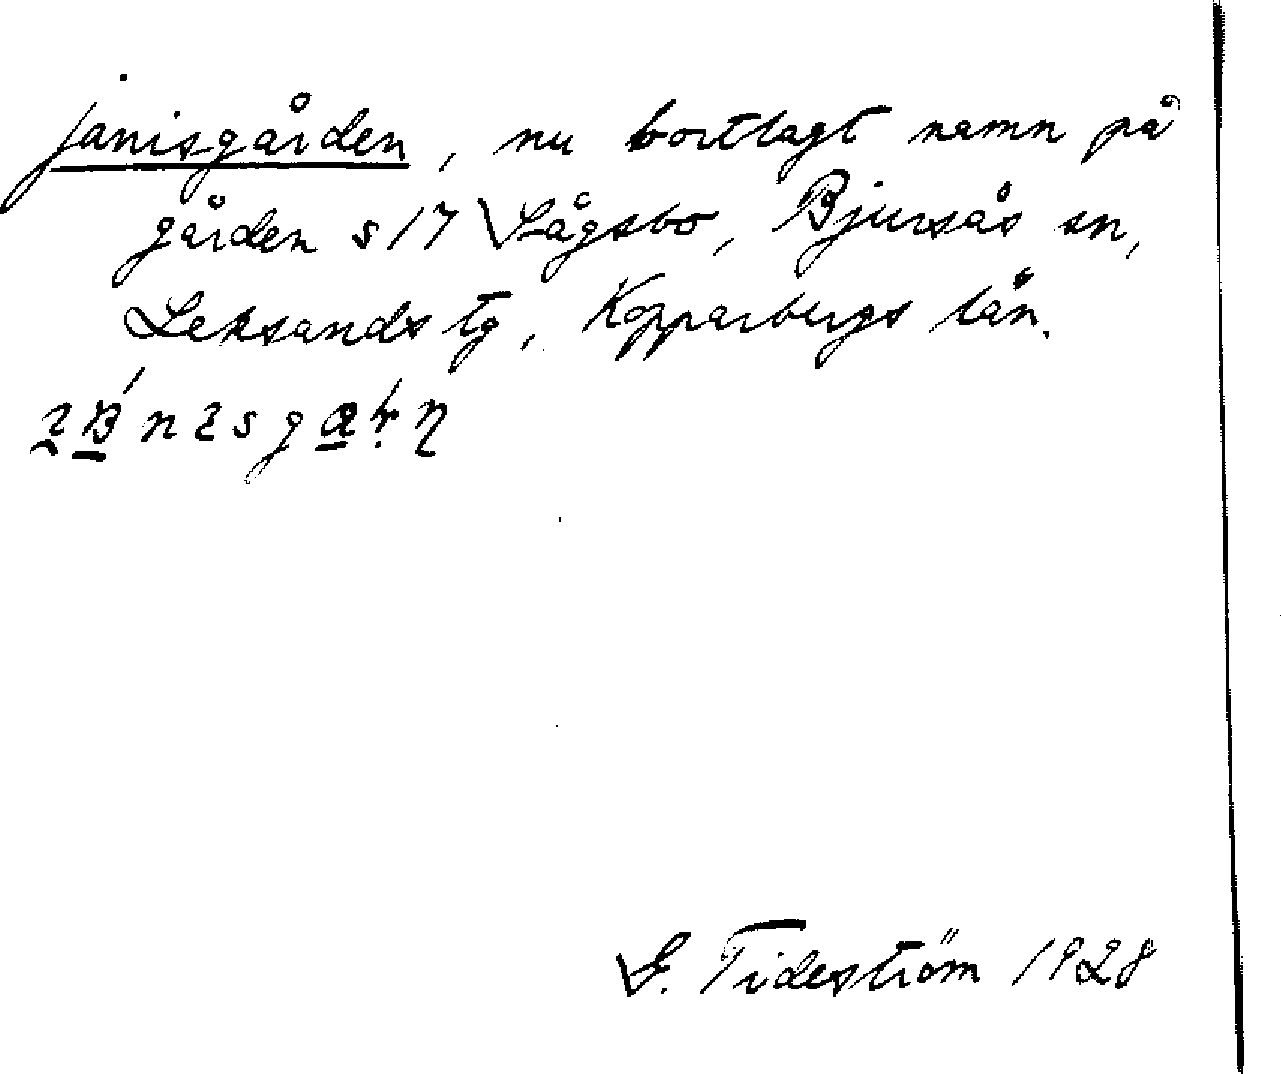 janisgården, nu bortlagt namn på
gården s 17 Lågsbo, Bjursås sn,
Leksands tg, Kopparbergs län.
G. Tideström 1928